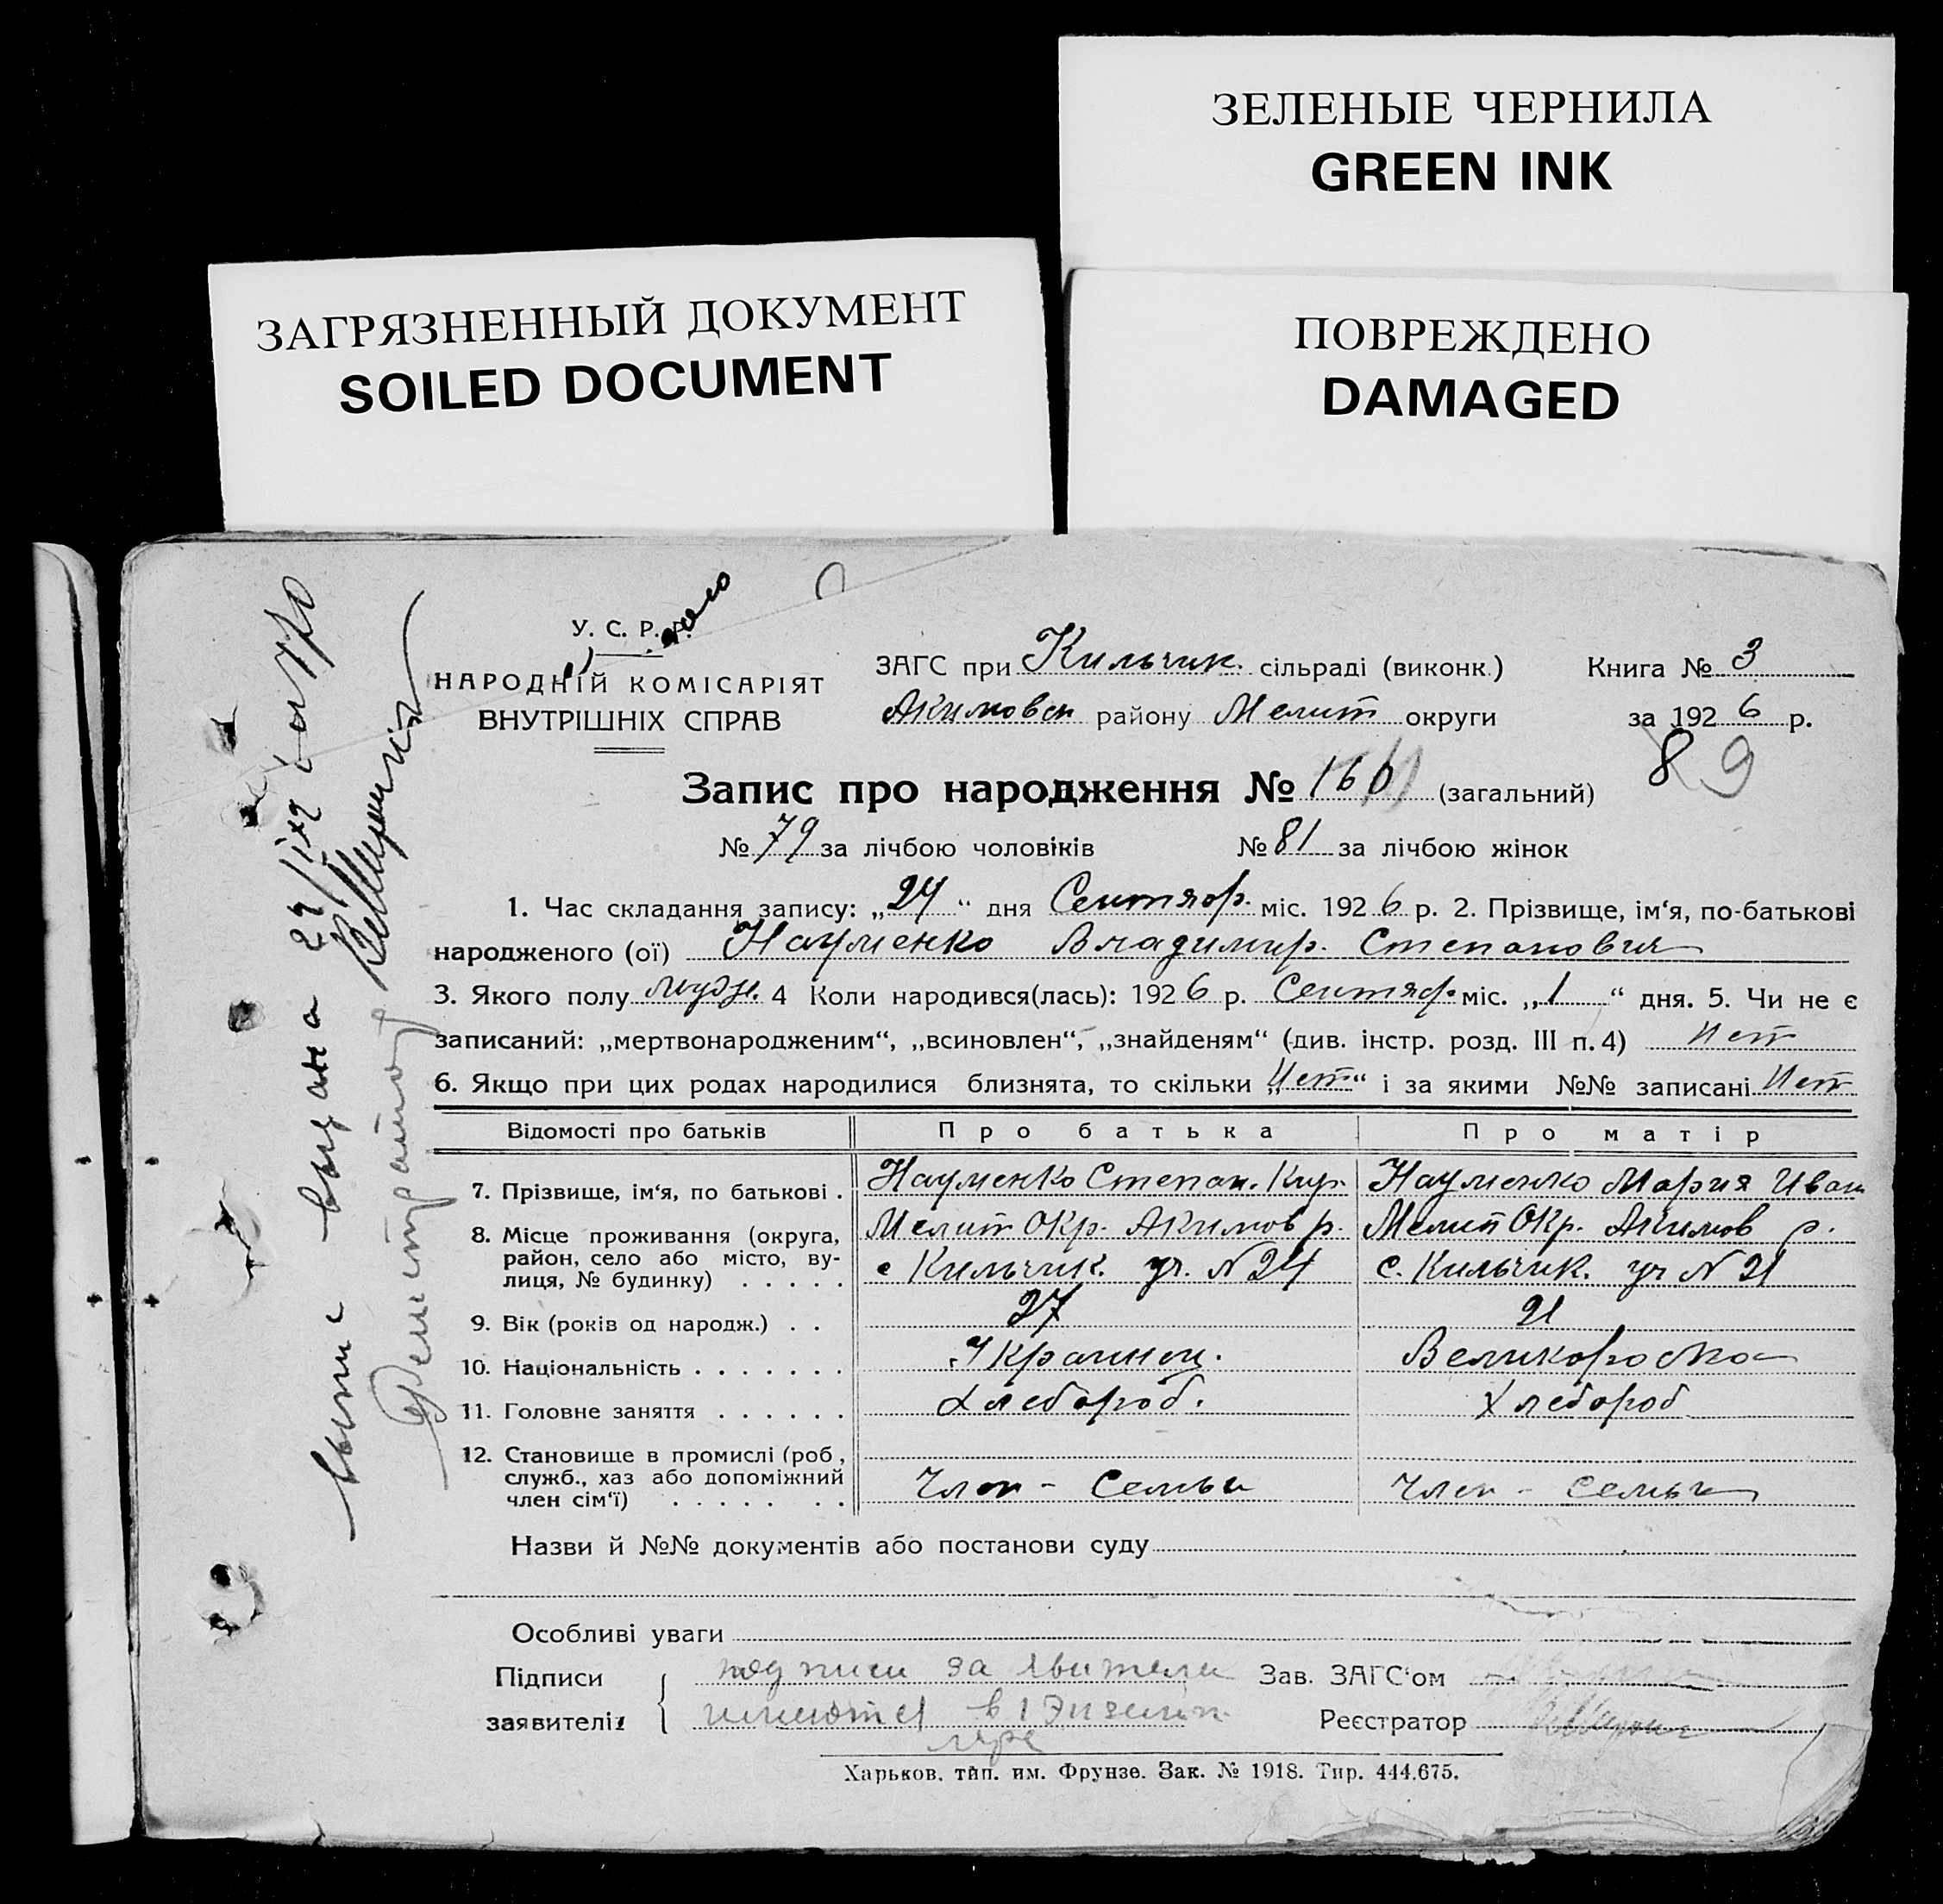 ЗЕЛЕНЫЕ ЧЕРНИЛА
GREEN INK
ЗАГРЯЗНЕННЫЙ ДОКУМЕНТ
SOILED DOCUMENT
ПОВРЕЖДЕНО
DAMAGED
У. С. Р. Р.
НАРОДНІЙ КОМІСАРІЯТ
ВНУТРІШНІХ СПРАВ
ЗАГС при Кильчик. сільраді (виконк.)
Книга № 3
Акимовск району Мелит округи
за 1926 р.
89
Запис про народження № 160 (загальний)
№ 79 за лічбою чоловіків № 81 за лічбою жінок
1. Час складання запису: „24“ дня Сентяб. міс. 1926 р. 2. Прізвище, ім‘я, по-батькові
народженого (ої) Науменко Владимир. Степанович
3. Якого полу мужс. 4 Коли народився(лась): 1926 р. Сентяб міс. „1“ дня. 5. Чи не є
записаний: „мертвонародженим“, „всиновлен“, „знайденям“ (див. інстр. розд. III п. 4) Нет
6. Якщо при цих родах народилися близнята, то скільки „Нет“ і за якими №№ записані Нет
Відомості про батьків Про батька Про матір
7. Прізвище, ім‘я, по батькові . Науменко Степан. Кир. Науменко Мария Иван
8. Місце проживання (округа, Мелит Окр. Акимов р. Мелит Окр. Акимов р.
район, село або місто, ву-
лиця, № будинку) . . . . . с Кильчик. уч. N 24 с. Кильчик. уч N 21
9. Вік (років од народж.) . . 27 21
10. Національність . . . . . . . Украинец. Великороска
11. Головне заняття . . . . . . Хлебороб. Хлебороб
12. Становище в промислі (роб,
служб., хаз або допоміжний
член сім‘ї) . . . . . . . Член - Семьи Член - семьи
Назви й №№ документів або постанови суду
Особливі уваги
Підписи подписи заявителя Зав. ЗАГС‘ом
заявителів имеются в 1 Экземп. Реєстратор
ляре
Харьков. тип. им. Фрунзе. Зак. № 1918. Тир. 444.675.